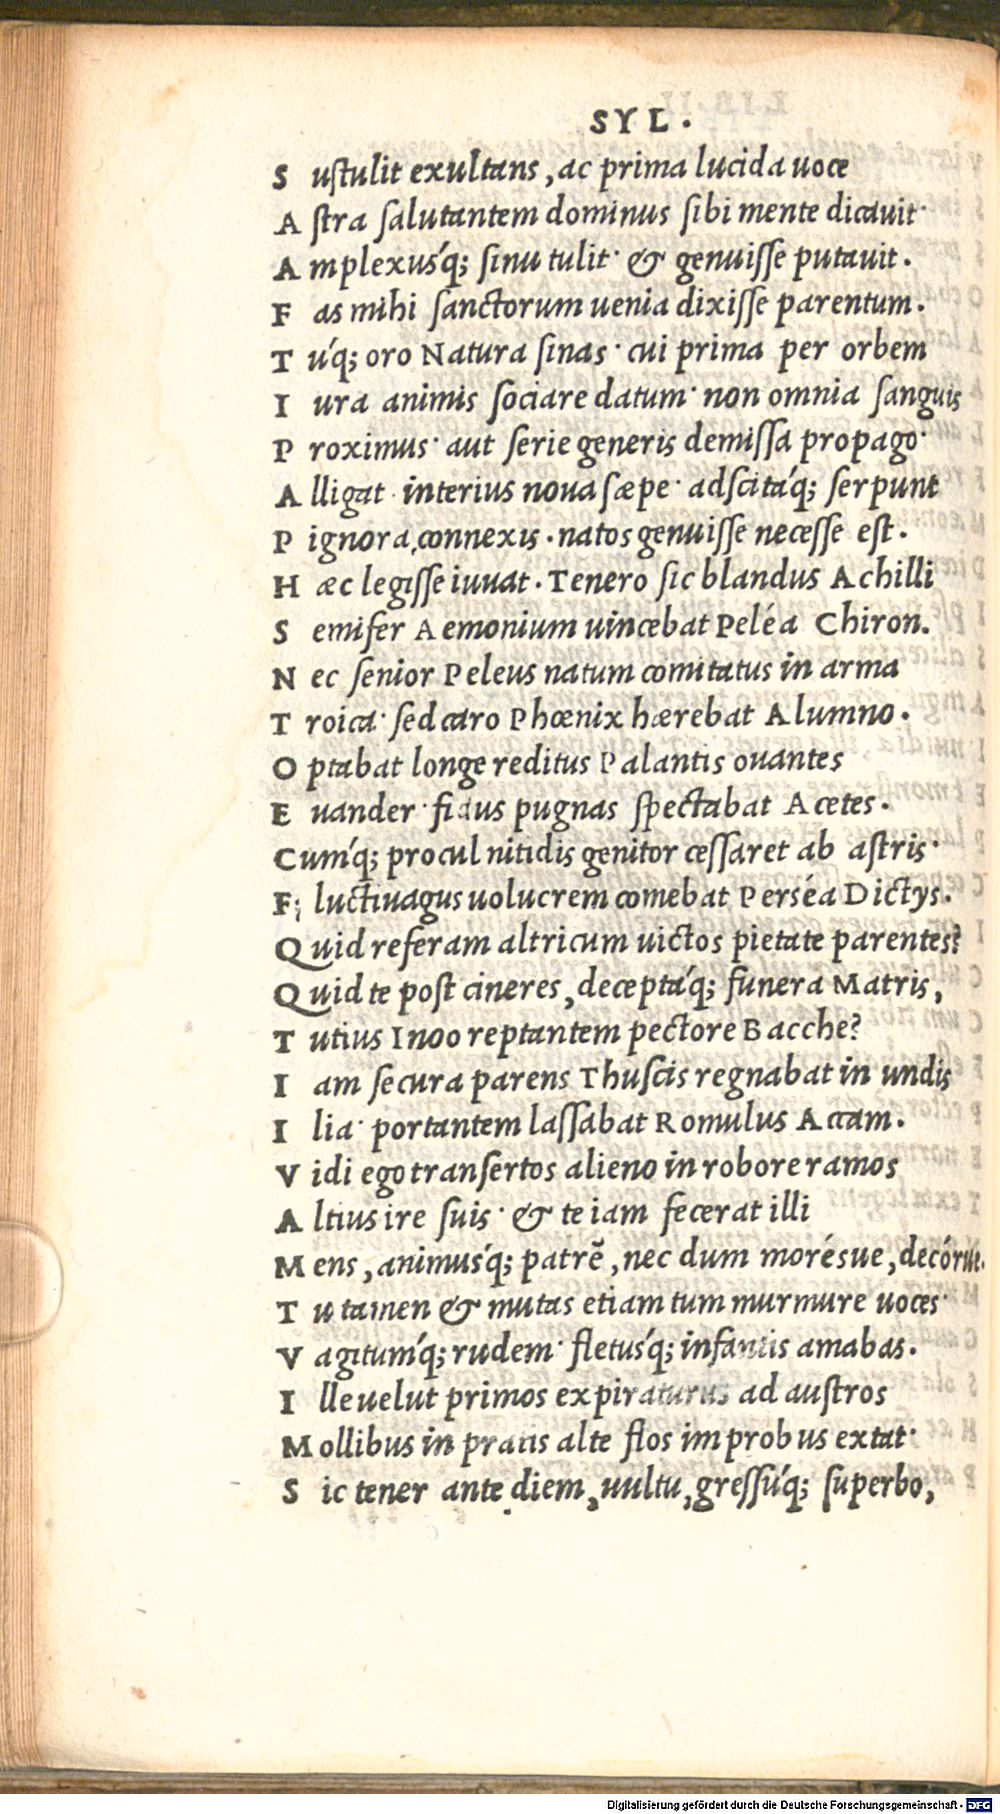 SYL.
S ustulit exultans, ac prima lucida uoce
A stra salutantem dominus sibi mente dicauit·
A mplexusq́; sinu tulit· & genuisse putauit.
F as mihi sanctorum uenia dixisse parentum.
T úq; oro Natura sinas· cui prima per orbem
I ura animis sociare datum· non omnia sanguis
P roximus· aut serie generis demissa propago·
A lligat· interius noua sæpe· adscitáq; serpunt
P ignora,connexis. natos genuisse necesse est.
H æc legisse iuuat. Tenero sic blandus Achilli
S emifer Aemonium uincebat Peléa Chiron.
N ec senior Peleus natum comitatus in arma
T roica· sed caro Phœnix hærebat Alumno.
O ptabat longe reditus Palantis ouantes
E uander· fidus pugnas spectabat Acetes.
Cumq́; procul nitidis genitor cessaret ab astris·
F; luctiuagus uolucrem comebat Perséa Dictys.
Quid referam altricum uictos pietate parentes?
Quid te post cineres, deceptáq; funera Matris,
T utius Inoo reptantem pectore Bacche?
I am secura parens Thuscis regnabat in undis
I lia· portantem lassabat Romulus Accam.
V idi ego transertos alieno in robore ramos
A ltius ire suis· & te iam fecerat illi
M ens, animusq́; patrē, nec dum morésue, decórue.
T u tamen & mutas etiam tum murmure uoces·
V agitumq́; rudem· fletusq́; infantis amabas.
I lle uelut primos expiraturus ad austros
M ollibus in pratis alte flos improbus extat·
S ic tener ante diem, uultu, gressúq; superbo,
Digitalisierung gefördert durch die Deutsche Forschungsgemeinschaft - DFG